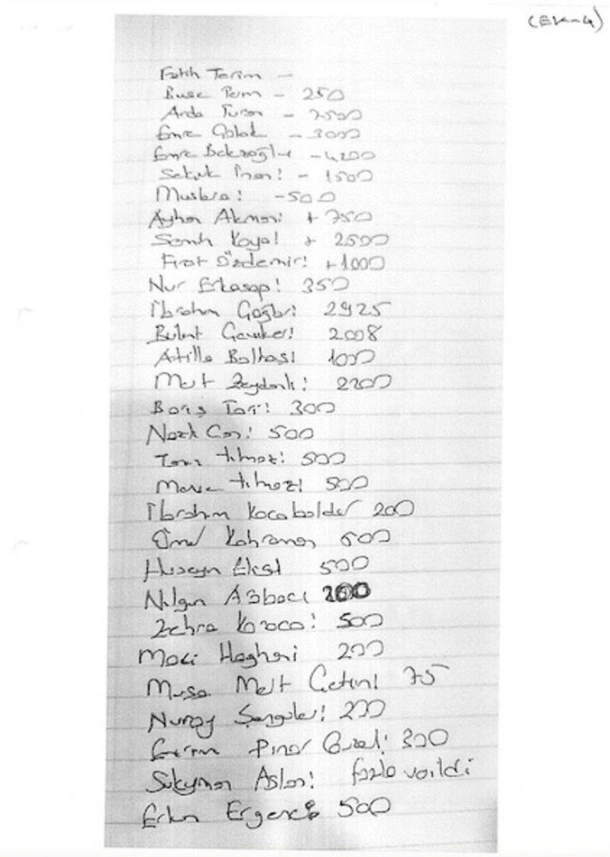 (Ek-4)
Fatih Terim -
Buse Terim - 250
Arda Turan - 2500
Emre Çolak - 3000
Emre Belezoğlu - 4200
Selçuk İnan: - 1500
Muslera: - 500
Ayhan Akman: + 750
Semih Kaya: + 2500
Fırat Özdemir: +1000
Nur Erkasap: 350
İbrahim Çağlar: 2925
Bülent Çeviker: 2008
Atilla Baltaş: 1000
Mert Zeydanlı: 2200
Barış 300
Nazlı Can: 500
Yılmaz: 500
Merve Yılmaz: 500
İbrahim Kocabalder 200
Ömer Kahraman 500
Hüseyin Eksi 500
Nilgün
Zehra Karaca: 500
Haghani 200
Musa Mert Çetin: 75
Nuray Şengüler: 200
Pınar Güzel: 300
Süleyman Aslan: fazla verildi
Erkun Ergenekon 500